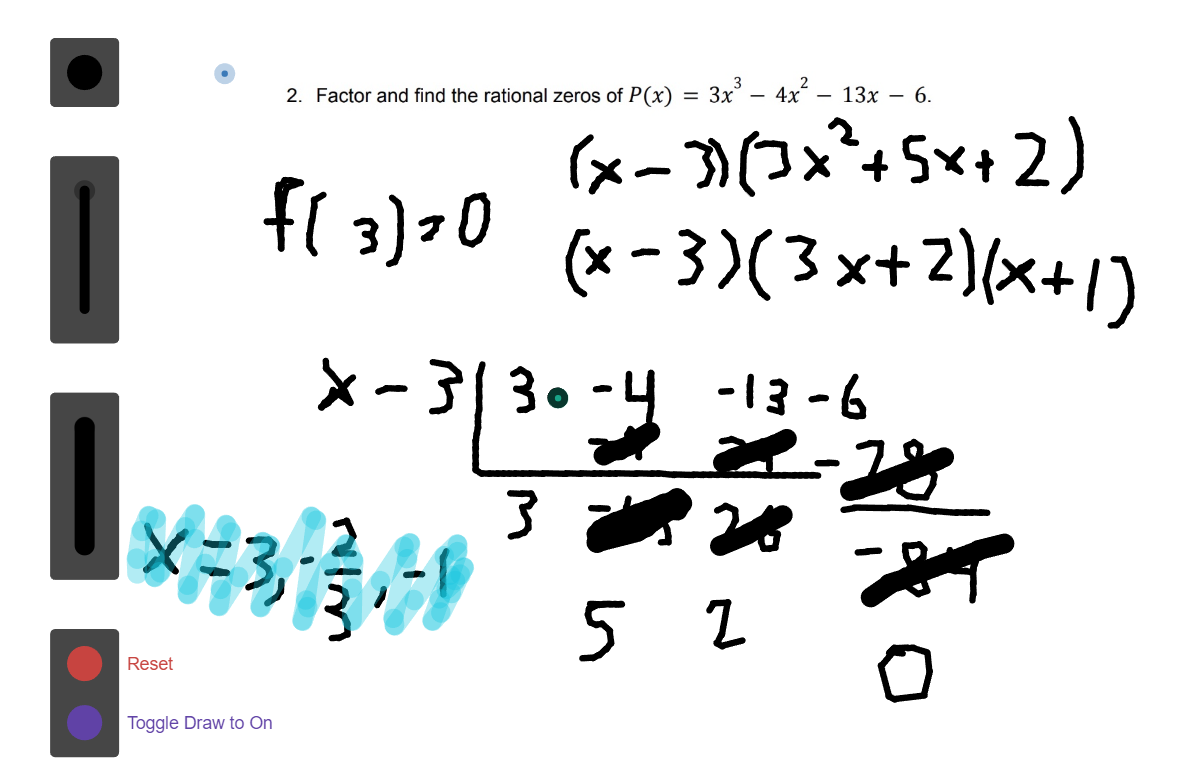 2. Factor and find the rational zeros of P(x) = 3x³ − 4x² − 13x − 6.
(x − 3)(3x² + 5x + 2)
f(3) = 0
(x − 3)(3x + 2)(x + 1)
x − 3 3 −4 −13 −6
3
x = 3, −2/3, −1
5 2
0
Reset
Toggle Draw to On